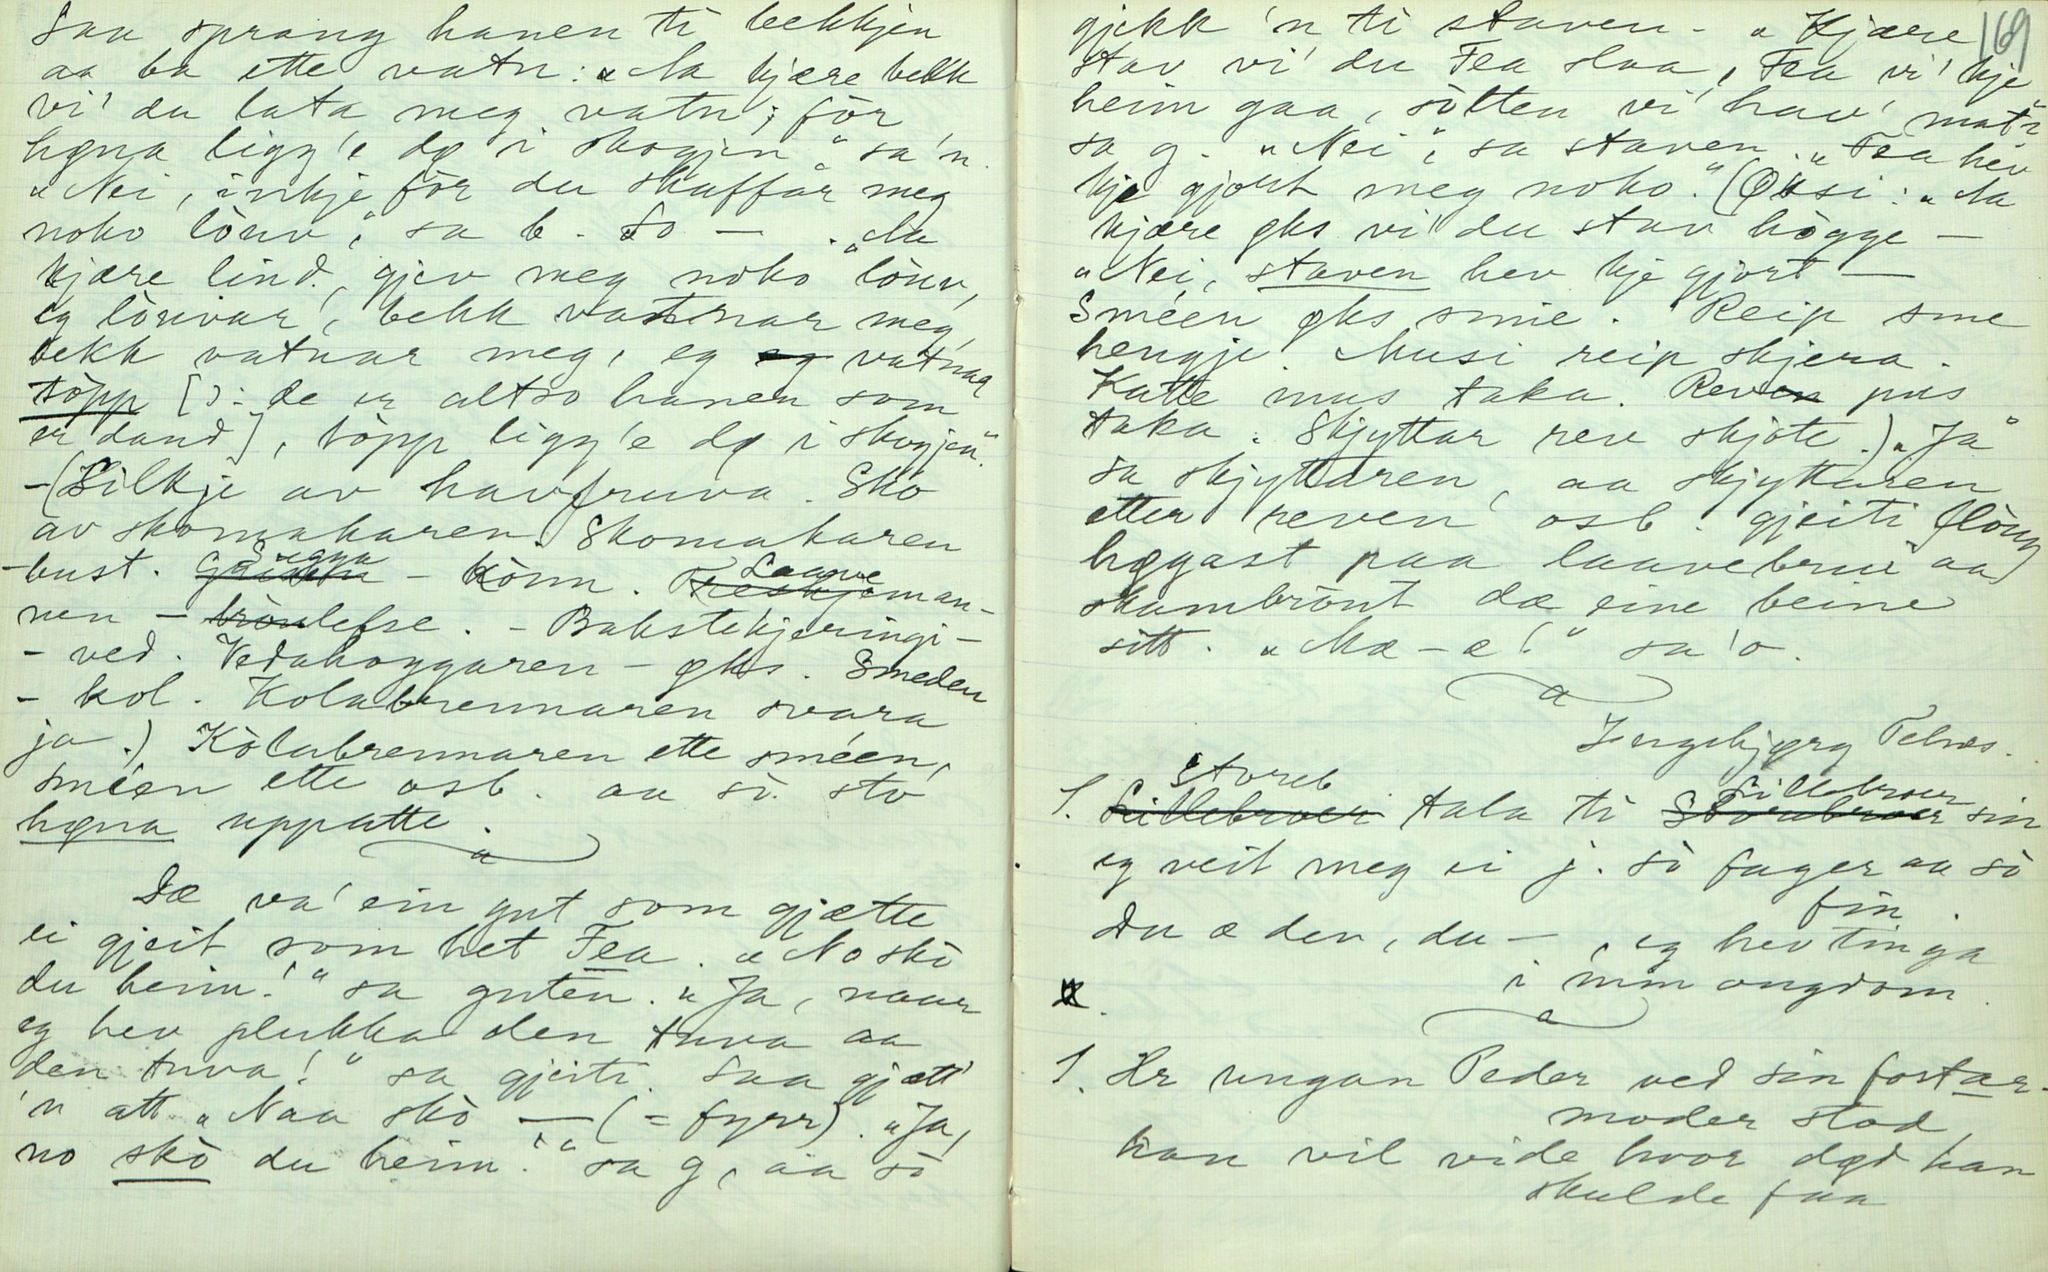 Saa sprang hanen ti bekkjen
aa ba ette vatn: „Aa kjære bekk
vi' du lata meg vatn; för
høna ligg'e dø i skogjen“, sa'n.
„Nei, inkje för du skaffar meg
noko lönv“, sa b. So — . „Aa
kjære lind, gjev meg noko lönv,
eg lönvar', bekk vatnar meg,
bekk vatnar meg, eg vatnar
töpp [ɔ: de er altso hanen som
er daud], töpp ligg'e dø i skogjen“.
– (Silkje av havfruva. Sko
av skomakaren. Skomakaren
– bust. Sugga – könn. Laave man-
nen – lefse. – Bakstekjeringi –
– ved. Vedahoggaren – øks. Smeden
– kol. Kolabrennaren svara
ja.) Kölabrennaren ette sméen,
sméen ette osb. aa sò sto
høna uppatte.
Dæ va' ein gut som gjætte
ei gjeit som het Fea. „No skò
du heim!“ sa guten. „Ja, naar
eg hev plukka den tuva aa
den tuva!“ sa gjeiti. Saa gjætt'
'n att „Naa skò — (= fyrr). „Ja,
no skò du heim!“ sa g, aa sò
169
gjekk 'n ti staven – „Kjære
stav vi' du Fea slaa, Fea vi' kje
heim gaa, sòlten vi' hav' mat“,
sa g. „Nei“, sa staven. „Fea hev
kje gjort meg noko.“ (Øksi: „Aa
kjære øks vi' du stav högge –
„Nei, staven hev kje gjort —
Sméen øks smie. Reip sme
hengje Musi reip skjera.
Katte mus taka. Rev pus
taka. Skyttar rev skjote.) „Ja“
sa skjyttaren, aa skjyttaren
etter reven osb. gjeiti flöug
høgast paa laavebrui aa
skambrönt dæ eine beine
sitt. „Mæ-e!“ sa'o.
Ingebjørg Telnes.
1. Storeb tala ti Lillebroer sin
eg veit meg ei j. sò fager aa sò
fin.
Du æ den, du – , eg hev tinga
i min ongdom.
1. Hr ungan Peder ved sin fostær-
moder stod,
han vil vide hvor død han
skulde faa